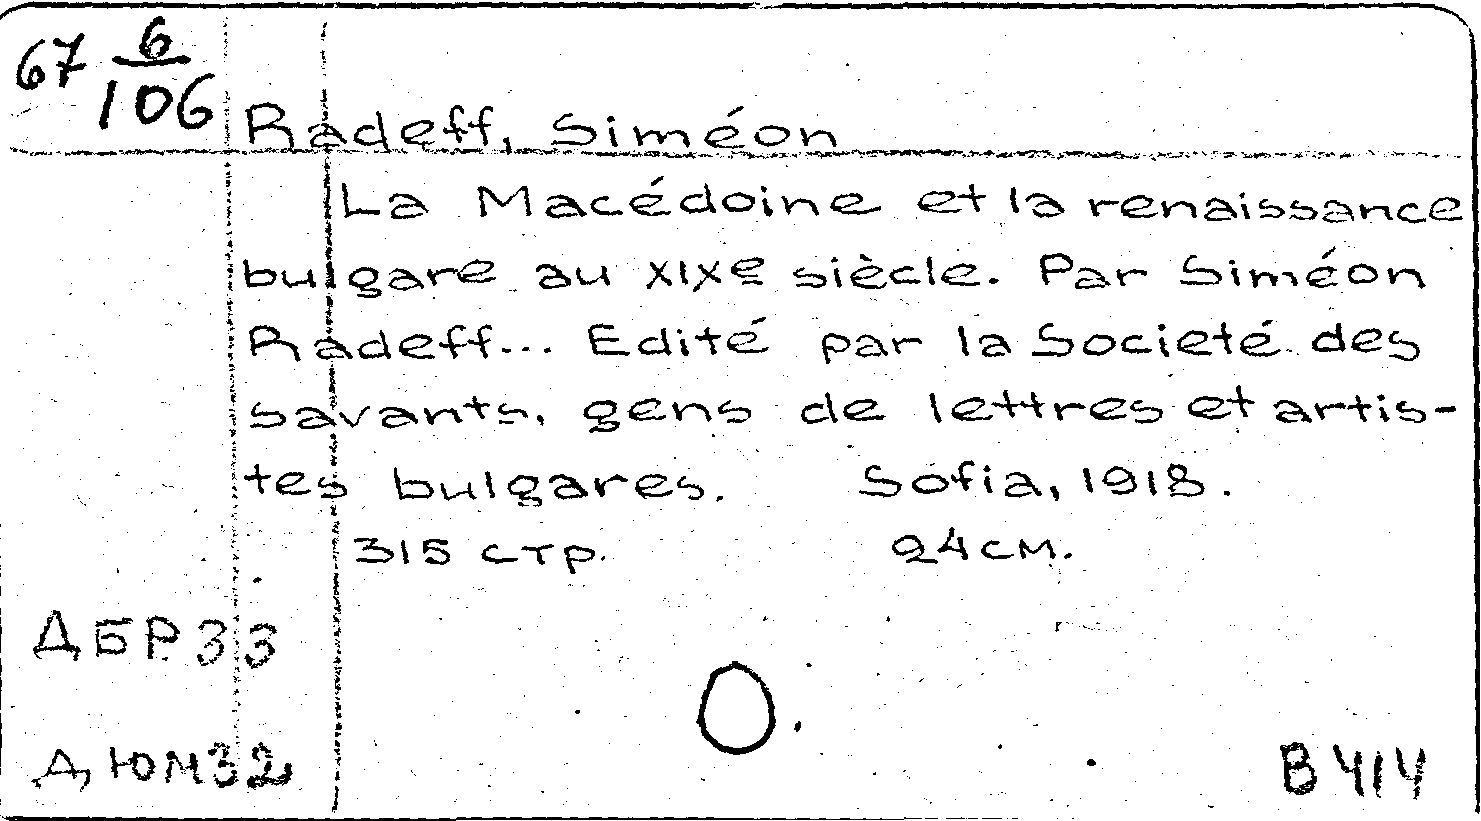 67 6/106
Radeff, Siméon
La Macédoine et la renaissance
bulgare au XIXe siècle. Par Siméon
Radeff... Edité par la Societé des
savants, gens de lettres et artis-
tes bulgares. Sofia, 1918.
315 стр. 24 см.
ДБР33
ДЮМ32
В 414